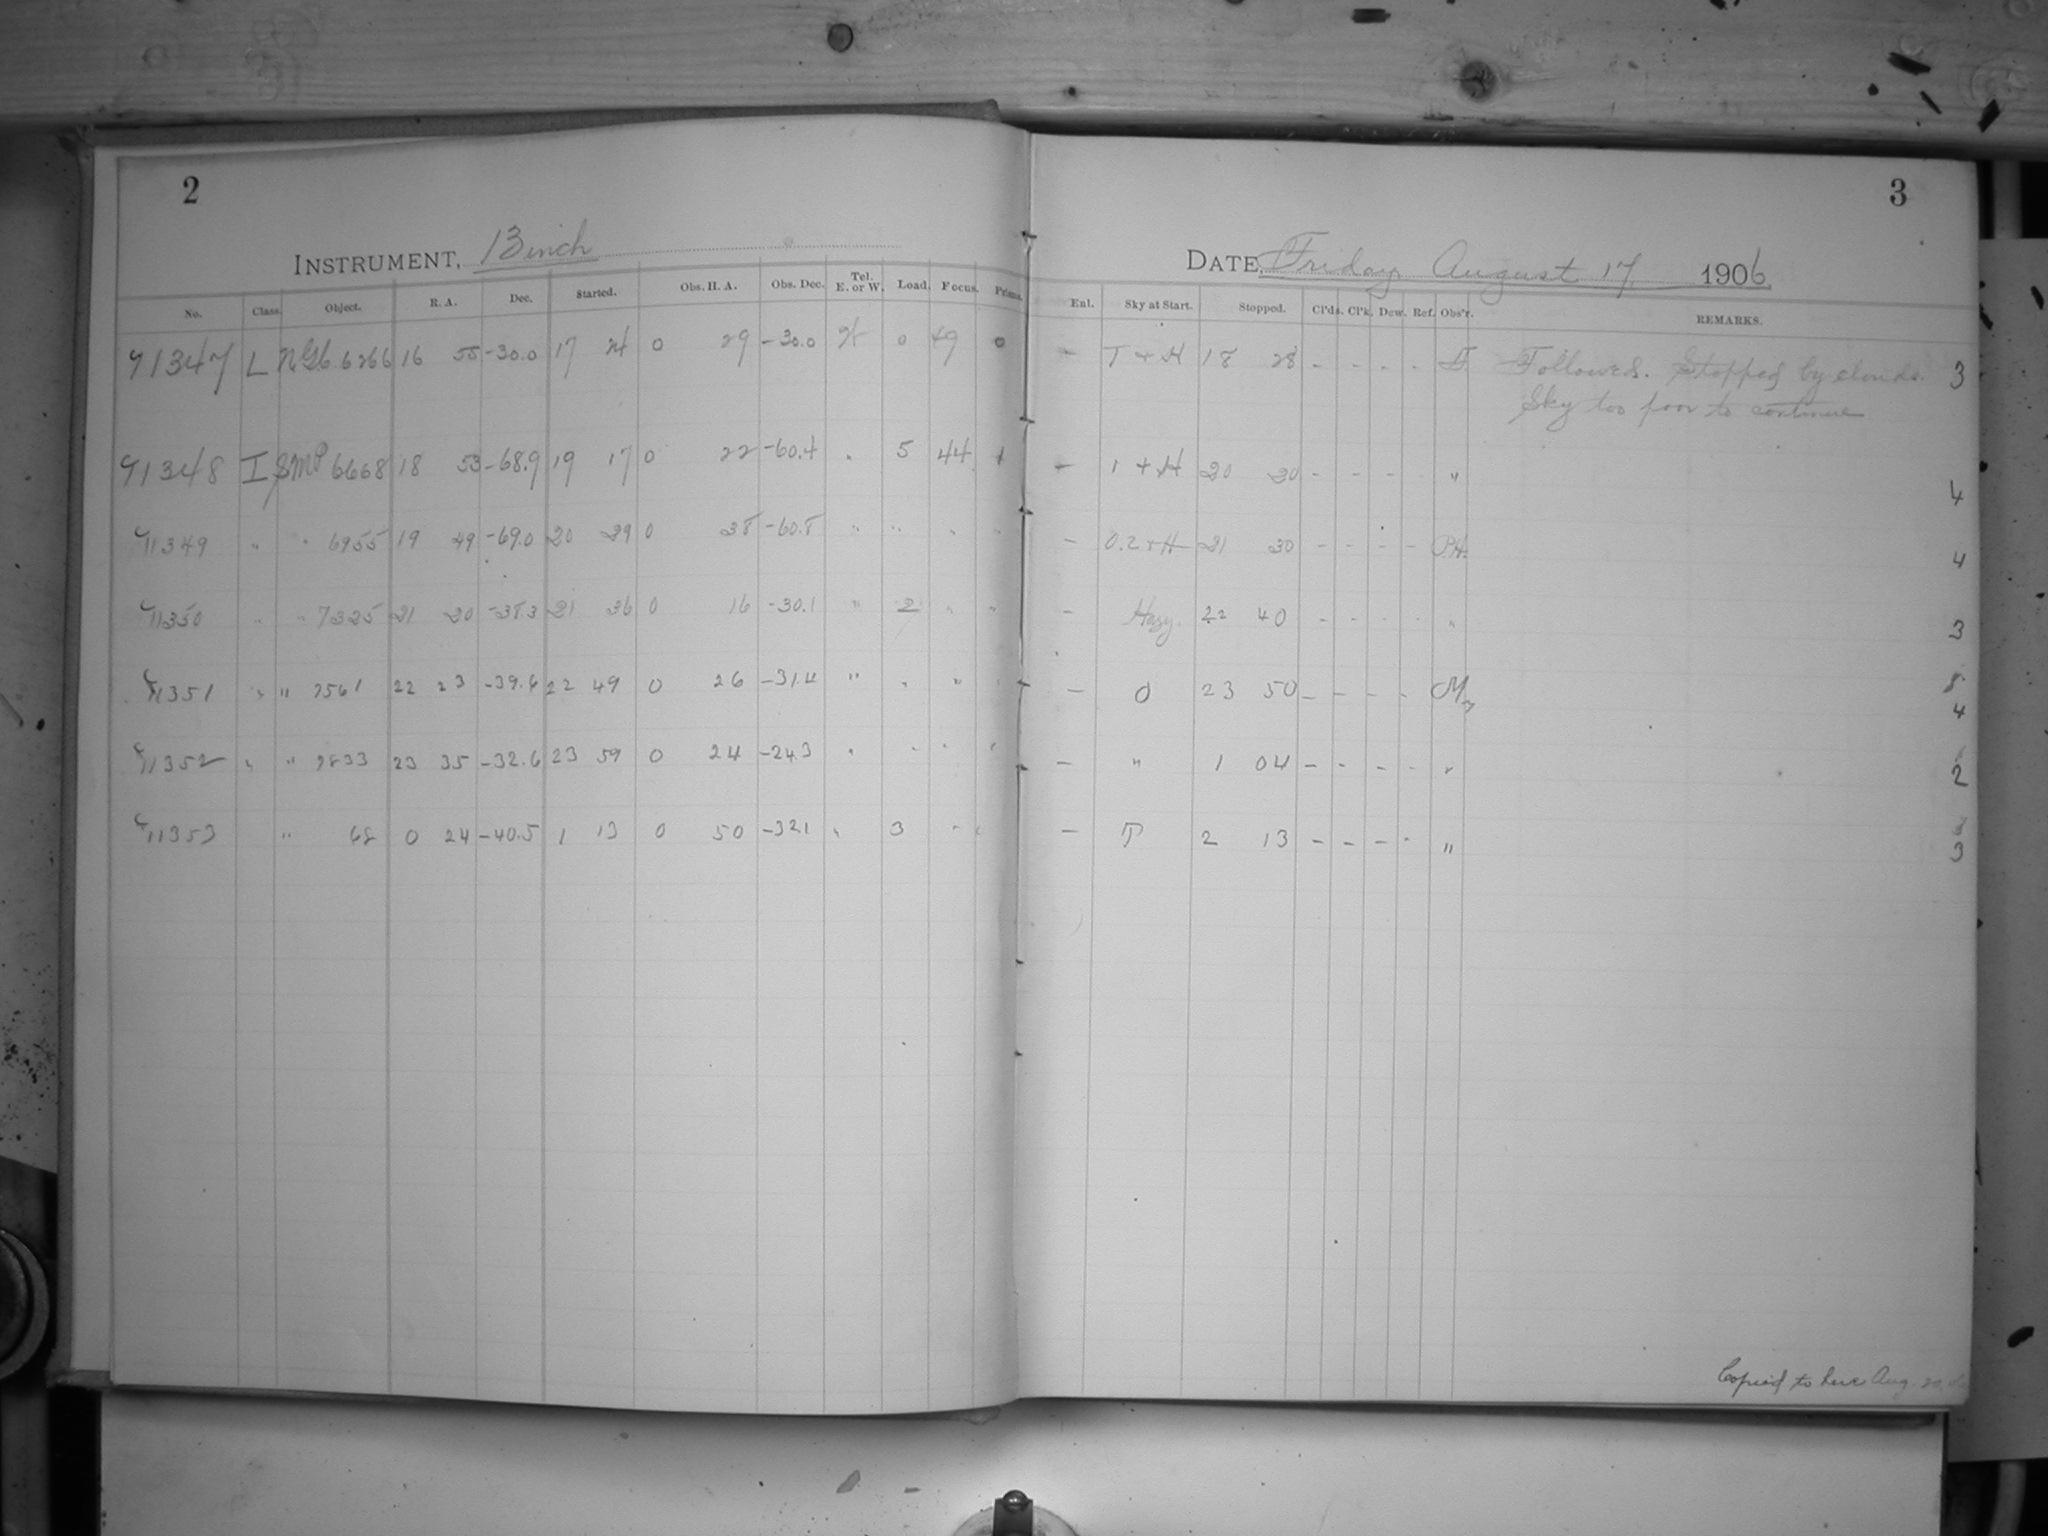 2
3
INSTRUMENT, 13 inch
DATE, Friday August 17, 1906
No. Class. Object. R. A. Dec. Started. Obs. H. A. Obs. Dec. Tel. E. or W. Load. Focus. Prisms.
Enl. Sky at Start. Stopped. Cl'ds. Cl'k. Dew. Ref. Obs'r. REMARKS.
91347 L NGC. 6266 16 55 -30.0 17 24 0 29 -30.0 W 0 49 0 - T + H 18 28 - - - - Followed. Stopped by clouds. 3
Sky too poor to continue
91348 I SMP 6668 18 53 -68.9 19 17 0 22 -60.4 " 5 44 1 - 1 + H 20 20 - - - - " 4
91349 " " 6955 19 49 -69.0 20 29 0 38 -60.8 " " " " - 0.2 + H 21 30 - - - - P.H. 4
91350 " " 7325 21 20 -38.3 21 36 0 16 -30.1 " 2 " " - Hazy. 22 40 - - - - " 3
91351 " " 7561 22 23 -39.6 22 49 0 26 -31.4 " " " " - 0 23 50 - - - - 4
91352 " " 7833 23 35 -32.6 23 59 0 24 -24.3 " " " " - " 1 04 - - - - " 2
91353 " 68 0 24 -40.5 1 13 0 50 -32.1 " 3 " " - T 2 13 - - - - " 3
Copied to here Aug. 20,